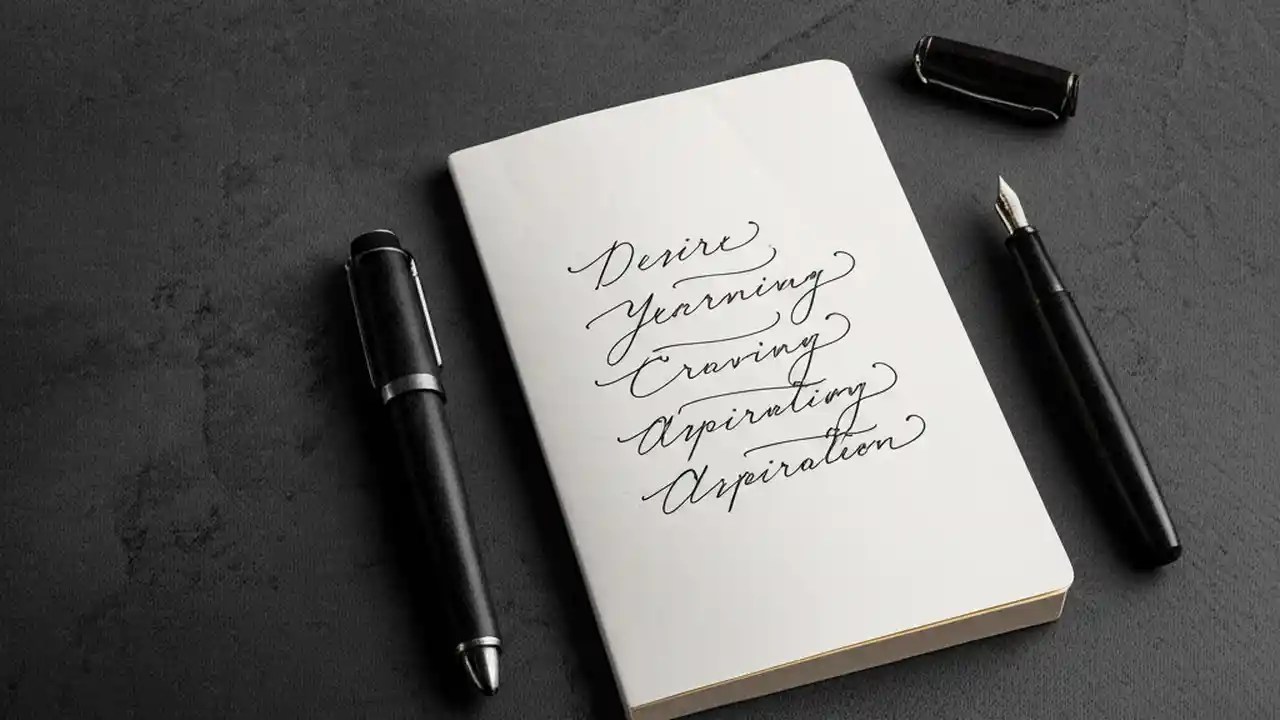 Desire
Yearning
Craving
Aspirating
Aspiration